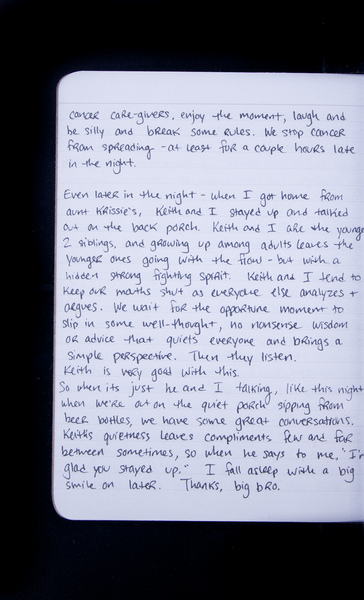 cancer care-givers, enjoy the moment, laugh and
be silly and break some rules. We stop cancer
from spreading - at least for a couple hours late
in the night.
Even later in the night - when I got home from
aunt Krissie's, Keith and I stayed up and talked
out on the back porch. Keith and I are the younge
2 siblings, and growing up among adults leaves the
younger ones going with the flow - but with a
hidden strong fighting spirit. Keith and I tend to
keep our mouths shut as everyone else analyzes +
argues. We wait for the opportune moment to
slip in some well-thought, no nonsense wisdom
or advice that quiets everyone and brings a
simple perspective. Then they listen.
Keith is very good with this.
So when its just he and I talking, like this night
when we're out on the quiet porch sipping from
beer bottles, we have some great conversations.
Keith's quietness leaves compliments few and far
between sometimes, so when he says to me, "I'm
glad you stayed up." I fall asleep with a big
smile on later. Thanks, big bro.